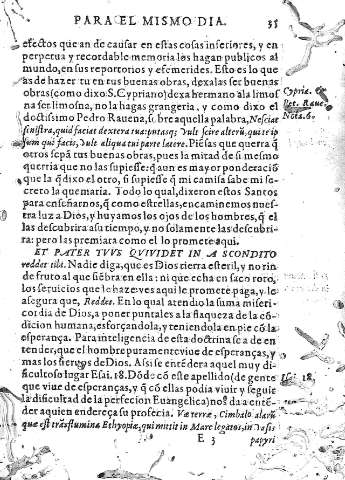 PARA EL MISMO DIA. 35
efectos que an de causar en estas cosas inferiores, y en
perpetua y recordable memoria los hagan publicos al
mundo, en sus reportorios y efemerides. Esto es lo que
as de hazer tu en tus buenas obras, dexalas ser buenas
obras (como dixo S. Cypriano) dexa hermano a la limos
na ser limosna, no la hagas grangeria, y como dixo el
doctissimo Pedro Rauena, sobre aquella palabra, Nesciat
sinistra, quid faciat dextera tua: putasq; vult scire alterũ, qui se ip
sum qui facis, vult aliqua tui parte latere. Piẽsas que querra q̃
otros sepã tus buenas obras, pues la mitad de si mesmo
querria que no las supiesse: q̃ aun es mayor ponderacio
que la q̃ dixo el otro, si supiesse q̃ mi camisa sabe mi se
creto la quemaria. Todo lo qual, dixeron estos Santos
para enseñarnos, q̃ como estrellas, encaminemos nues
tra luz a Dios, y huyamos los ojos de los hombres, q̃ el
las descubrira a su tiempo, y no solamente las descubri
ra: pero las premiara como el lo promete aqui.
ET PATER TVVS QVI VIDET IN ABSCONDITO
reddet tibi. Nadie diga, que es Dios tierra esteril, y no rin
de fruto al que siẽbra en ella: ni que echa en saco roto,
los seruicios que le haze: ves aqui le promete paga, y le
asegura que, Reddet. En lo qual atendio la suma miseri
cordia de Dios, a poner puntales a la flaqueza de la cõ
dicion humana, esforçandola, y teniendola en pie cõ la
esperança. Para inteligencia de esta doctrina se a de en
tender, que el hombre puramente viue de esperanças, y
mas los sieruos de Dios. Assi se entẽdera aquel muy di
ficultoso lugar Esai. 18. Dõde cõ este apellido (de gente
que viue de esperanças, y q̃ cõ ellas podia viuir y seguir
la dificultad de la perfecion Euangelica) nos da a entẽ
der aquien endereça su profecia. Væ terræ, Cimbalo alarũ
quæ est trãs flumina Ethyopiæ, qui mittit in Mare legatos, in vasis
E 3 papyri
Cypria.
Pet. Raue.
Nota. 6.
Esai. 18.